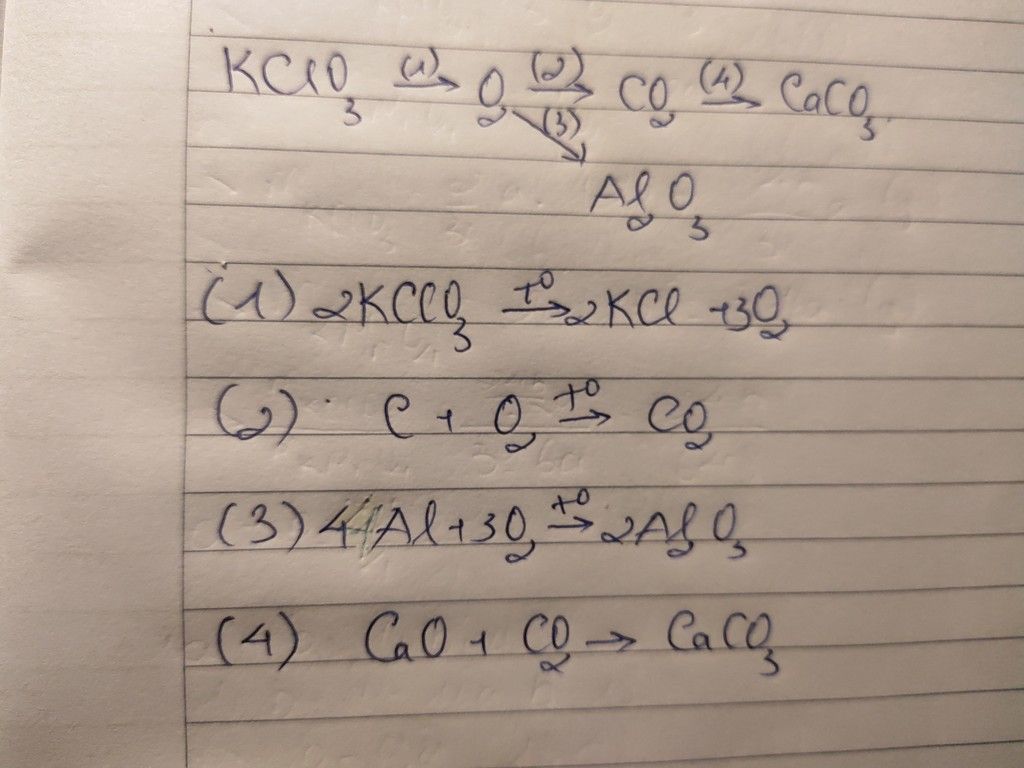 KClO₃ →(1) O₂ →(2) CO₂ →(4) CaCO₃
(3)
Al₂O₃
(1) 2KClO₃ →t⁰ 2KCl + 3O₂
(2) C + O₂ →t⁰ CO₂
(3) 4Al + 3O₂ →t⁰ 2Al₂O₃
(4) CaO + CO₂ → CaCO₃